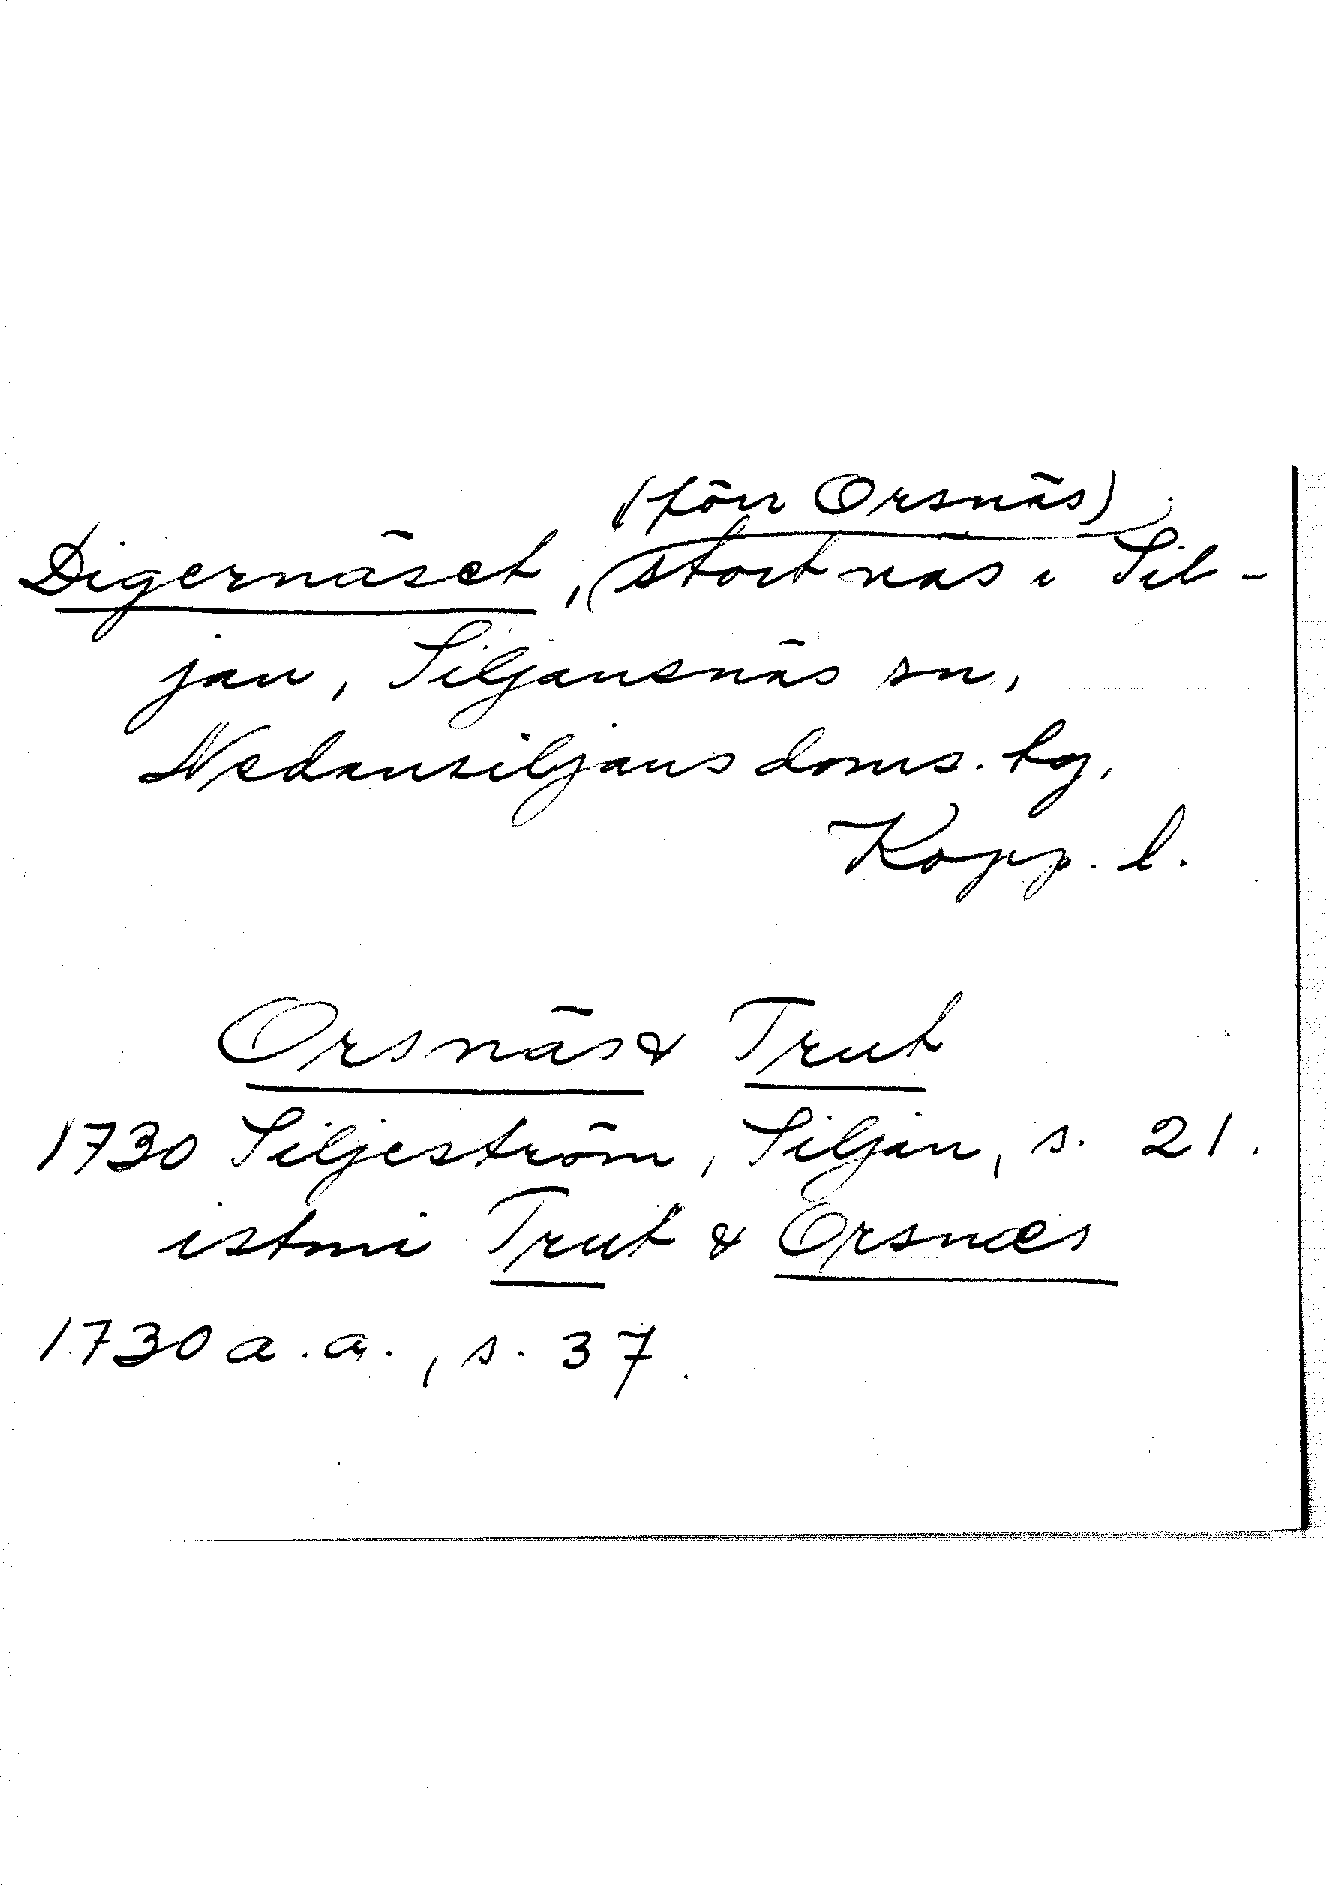 (förr Orsnäs)
Digernäset, stort näs i Sil-
jan, Siljansnäs sn,
Nedansiljans doms. tg,
Kopp. l.
Orsnäs & Trut
1730 Siljeström, Siljan, s. 21.
istmi Trut & Orsnæs
1730 a.a., s. 37.